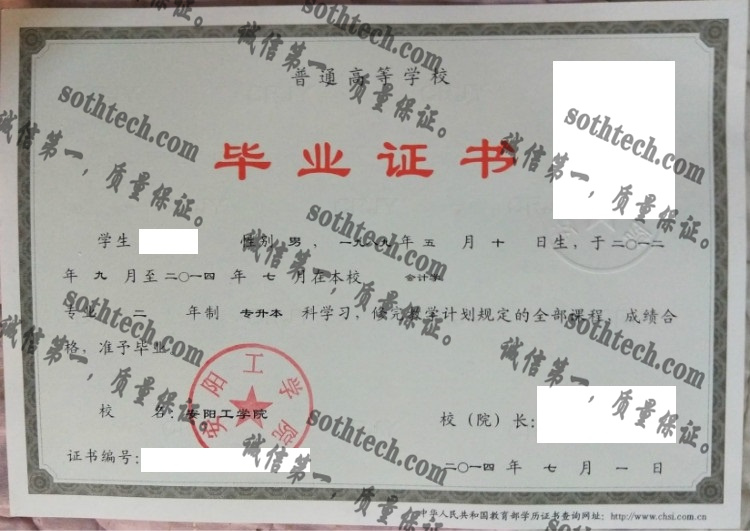 普通高等学校
毕业证书
学生 性别 男 ，一九八九年 五 月 十 日生，于二〇一二
年 九 月至二〇一四 年 七 月在本校 会计学
专业 二 年制 专升本 科学习，修完教学计划规定的全部课程，成绩合
格，准予毕业
校 名：安阳工学院
校（院）长：
证书编号：
二〇一四 年 七 月 一 日
中华人民共和国教育部学历证书查询网址：http://www.chsi.com.cn
安阳工学院
sothtech.com
诚信第一，质量保证。
sothtech.com
诚信第一，质量保证。
sothtech.com
诚信第一，质量保证。
sothtech.com
诚信第一，质量保证。
sothtech.com
诚信第一，质量保证。
sothtech.com
诚信第一，质量保证。
sothtech.com
诚信第一，质量保证。